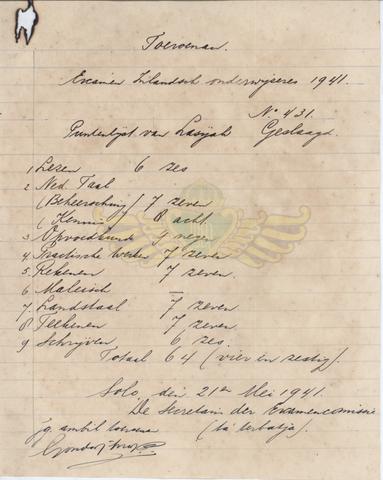 Toeroenan.
Examen Inlandsch onderwijzeres 1941.
No 431.
Puntenlijst van Lasijah Geslaagd.
1 Lezen 6 zes
2 Ned. Taal
(Beheersching) 7 zeven
(Kennis) 8 acht.
3 Opvoedkund 9 negen
4 Practische werken 7 zeven
5 Rekenen 7 zeven.
6 Maleisch —
7 Landstaal 7 zeven
8 Teekenen 7 zeven
9 Schrijven 6 zes.
Totaal 64 (vier en zestig).
Solo, den 21en Mei 1941.
De Secretaris der Examencomissie
jg. ambil toeroenan